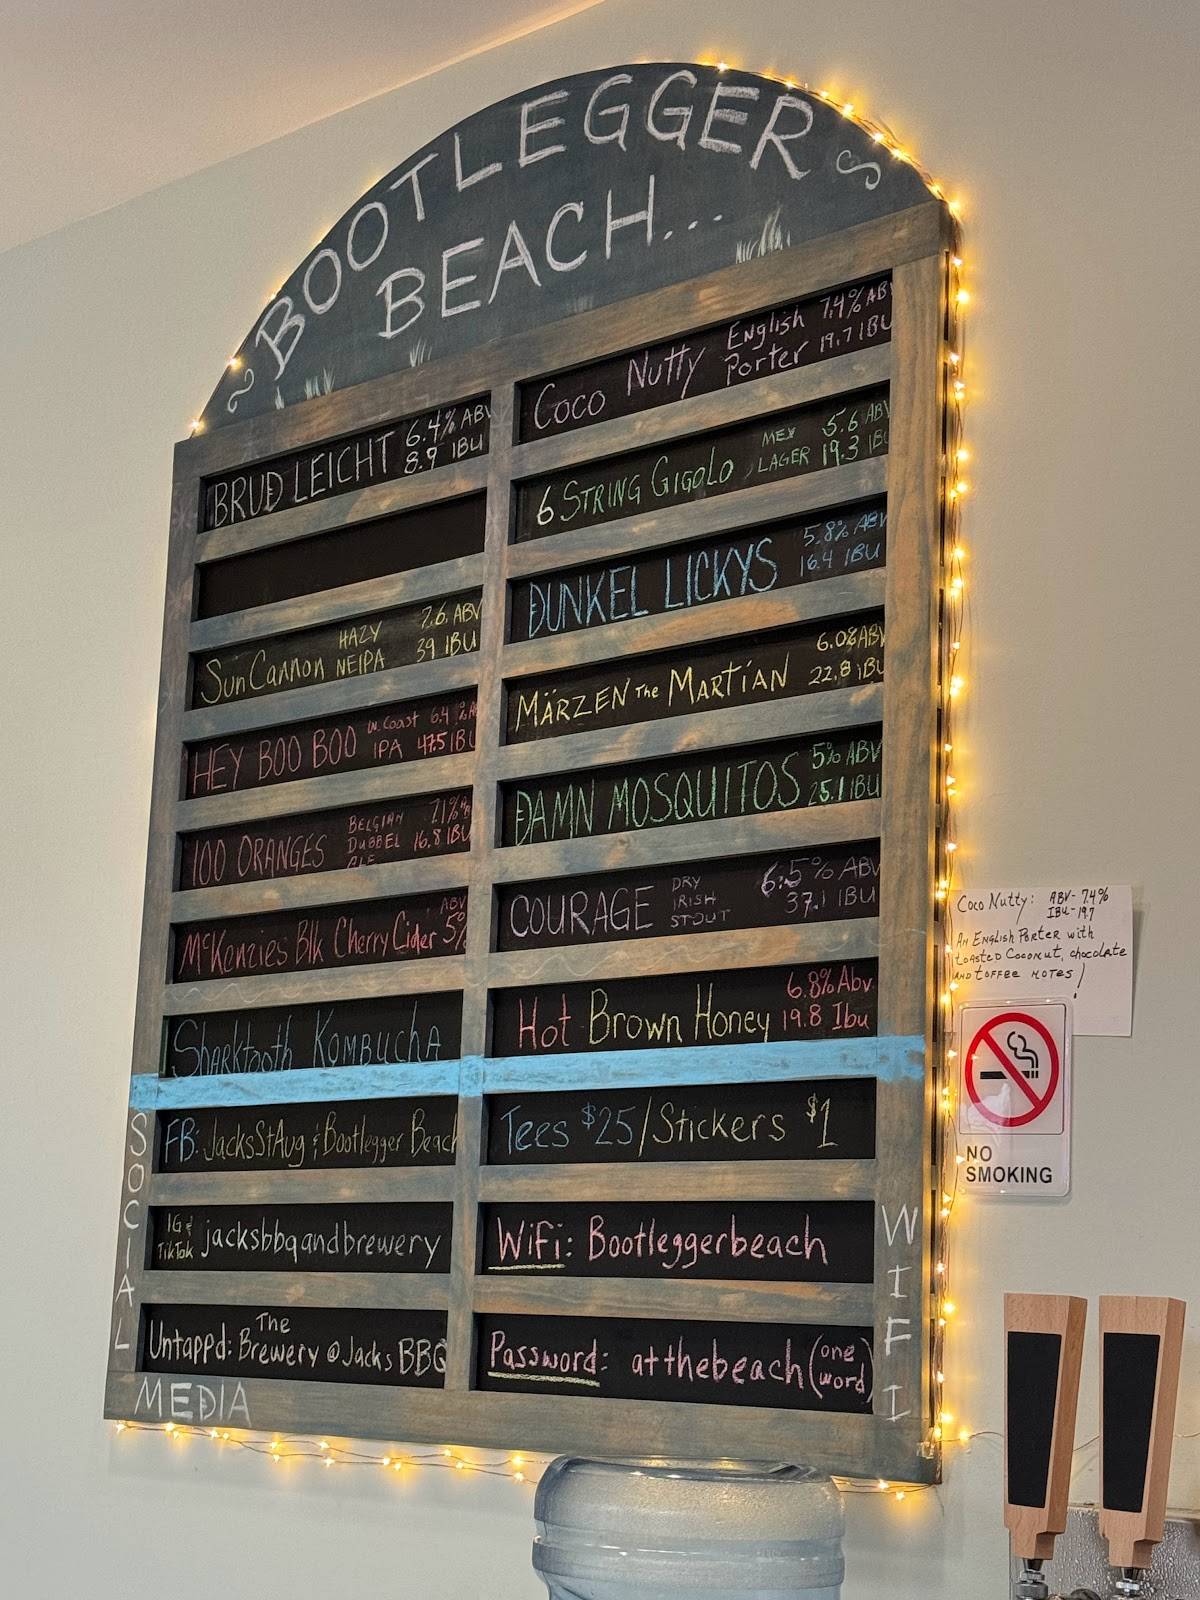 BOOTLEGGER
BEACH...
BRUD LEICHT 6.4% ABV
8.9 IBU
SunCannon HAZY NEIPA 7.6. ABV
39 IBU
HEY BOO BOO W. Coast IPA 6.4 % AB
47.5 IBU
100 ORANGES BELGIAN DUBBEL 7.1% AB
16.8 IBU
McKenzies Blk Cherry Cider ABV 5%
Sharktooth Kombucha
Coco Nutty English Porter 7.4% AB
19.7 IBU
6 STRING GIGOLO MEX LAGER 5.6 ABV
19.3 IBU
DUNKEL LICKYS 5.8% ABV
16.4 IBU
MÄRZEN THE MARTIAN 6.0% ABV
22.8 IBU
DAMN MOSQUITOS 5% ABV
25.1 IBU
COURAGE DRY IRISH STOUT 6.5% ABV
37.1 IBU
Hot Brown Honey 6.8% Abv.
19.8 Ibu
SOCIAL
MEDIA
FB: JacksStAug & Bootlegger Beach
IG & TikTok jacksbbqandbrewery
Untappd: The Brewery @ Jacks BBQ
Tees $25/Stickers $1
WiFi: Bootleggerbeach
Password: atthebeach (one word)
WIFI
Coco Nutty: ABV- 7.4%
IBU- 19.7
AN ENGLISH PORTER with
toasted Coconut, chocolate
AND toffee NOTES!
NO
SMOKING